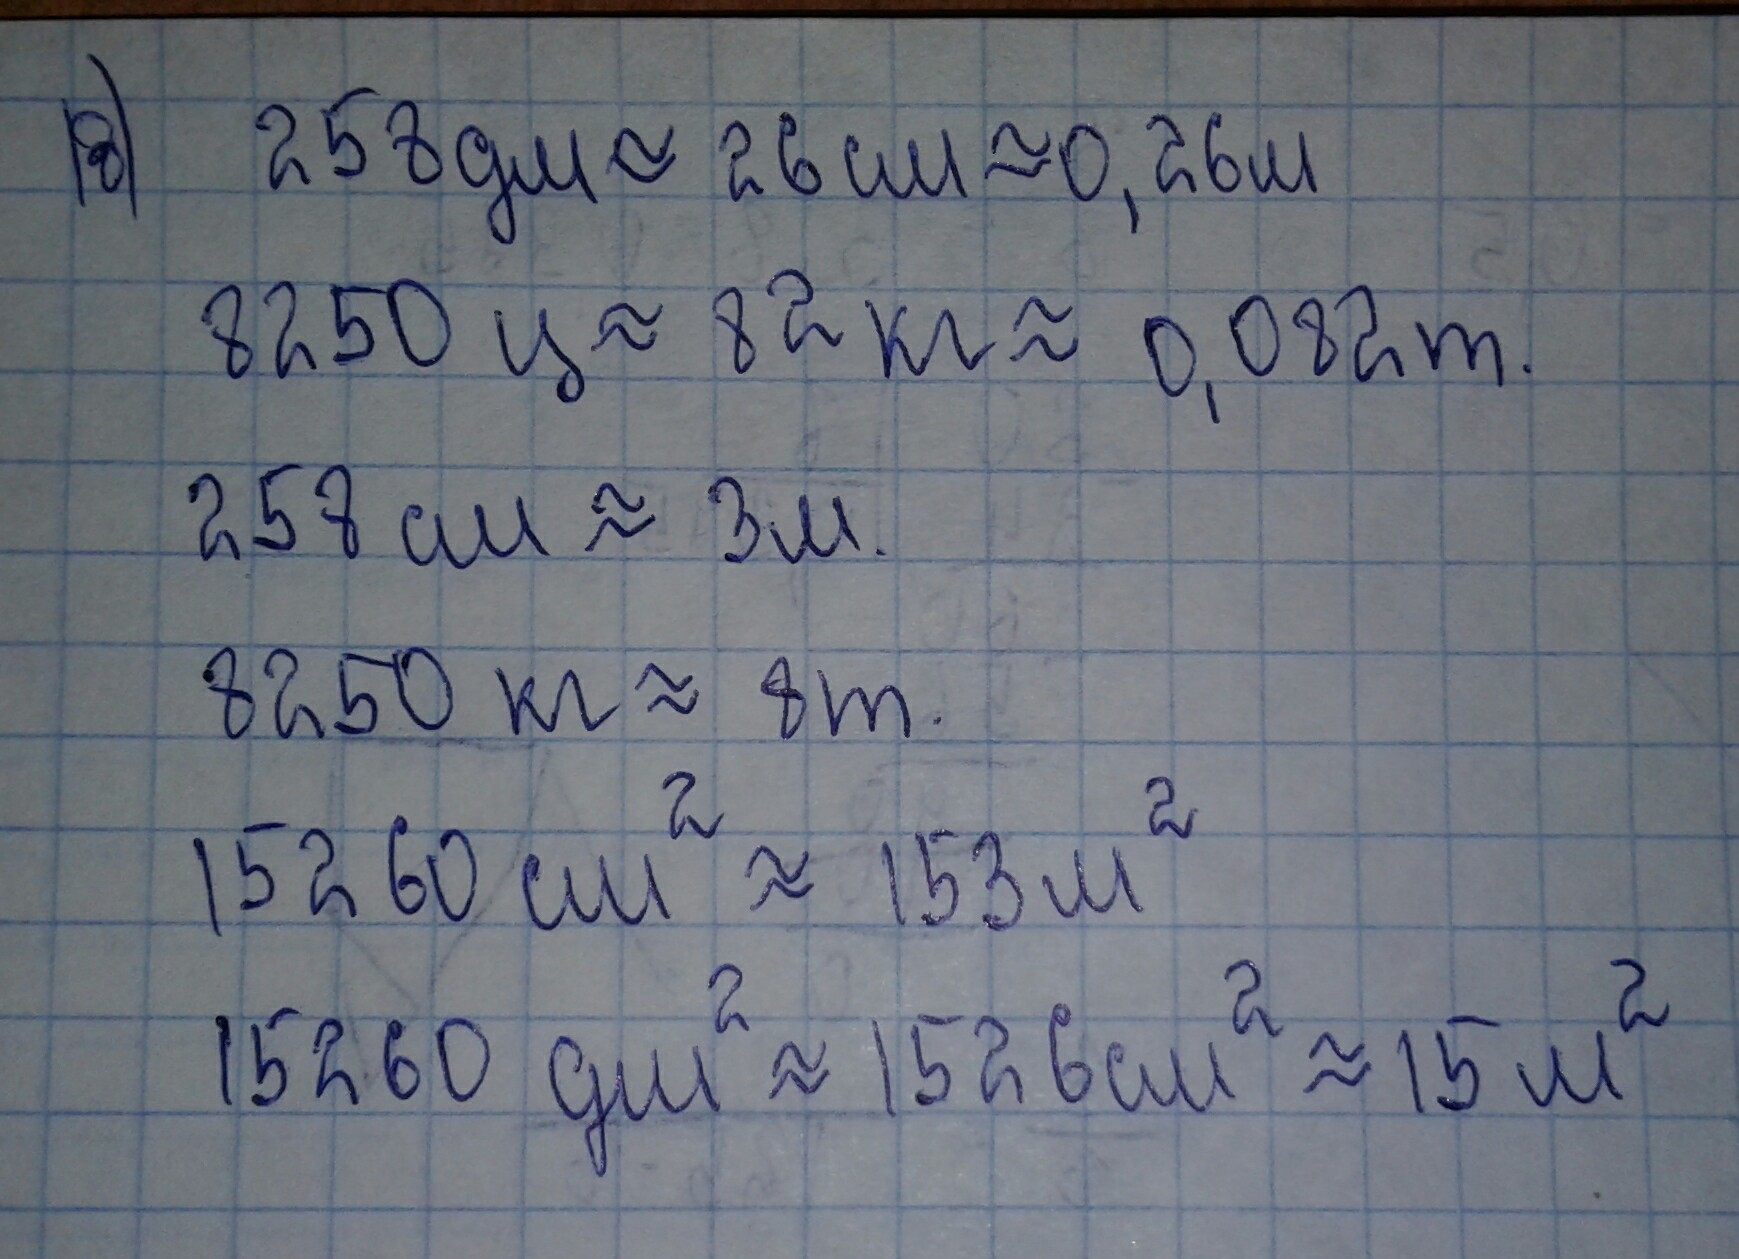 8) 258 дм ≈ 26 см ≈ 0,26 м
8250 ц ≈ 82 кг ≈ 0,082 т.
258 см ≈ 3 м.
8250 кг ≈ 8 т.
15260 см² ≈ 153 м²
15260 дм² ≈ 1526 см² ≈ 15 м²